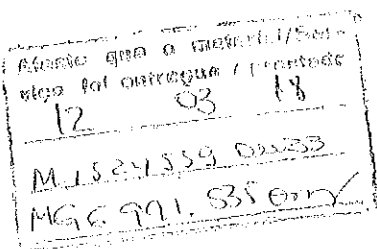 Atesto que o material/Ser-
viço foi entregue / prestado
12 03 18
M.1524559
MG 6.991.535